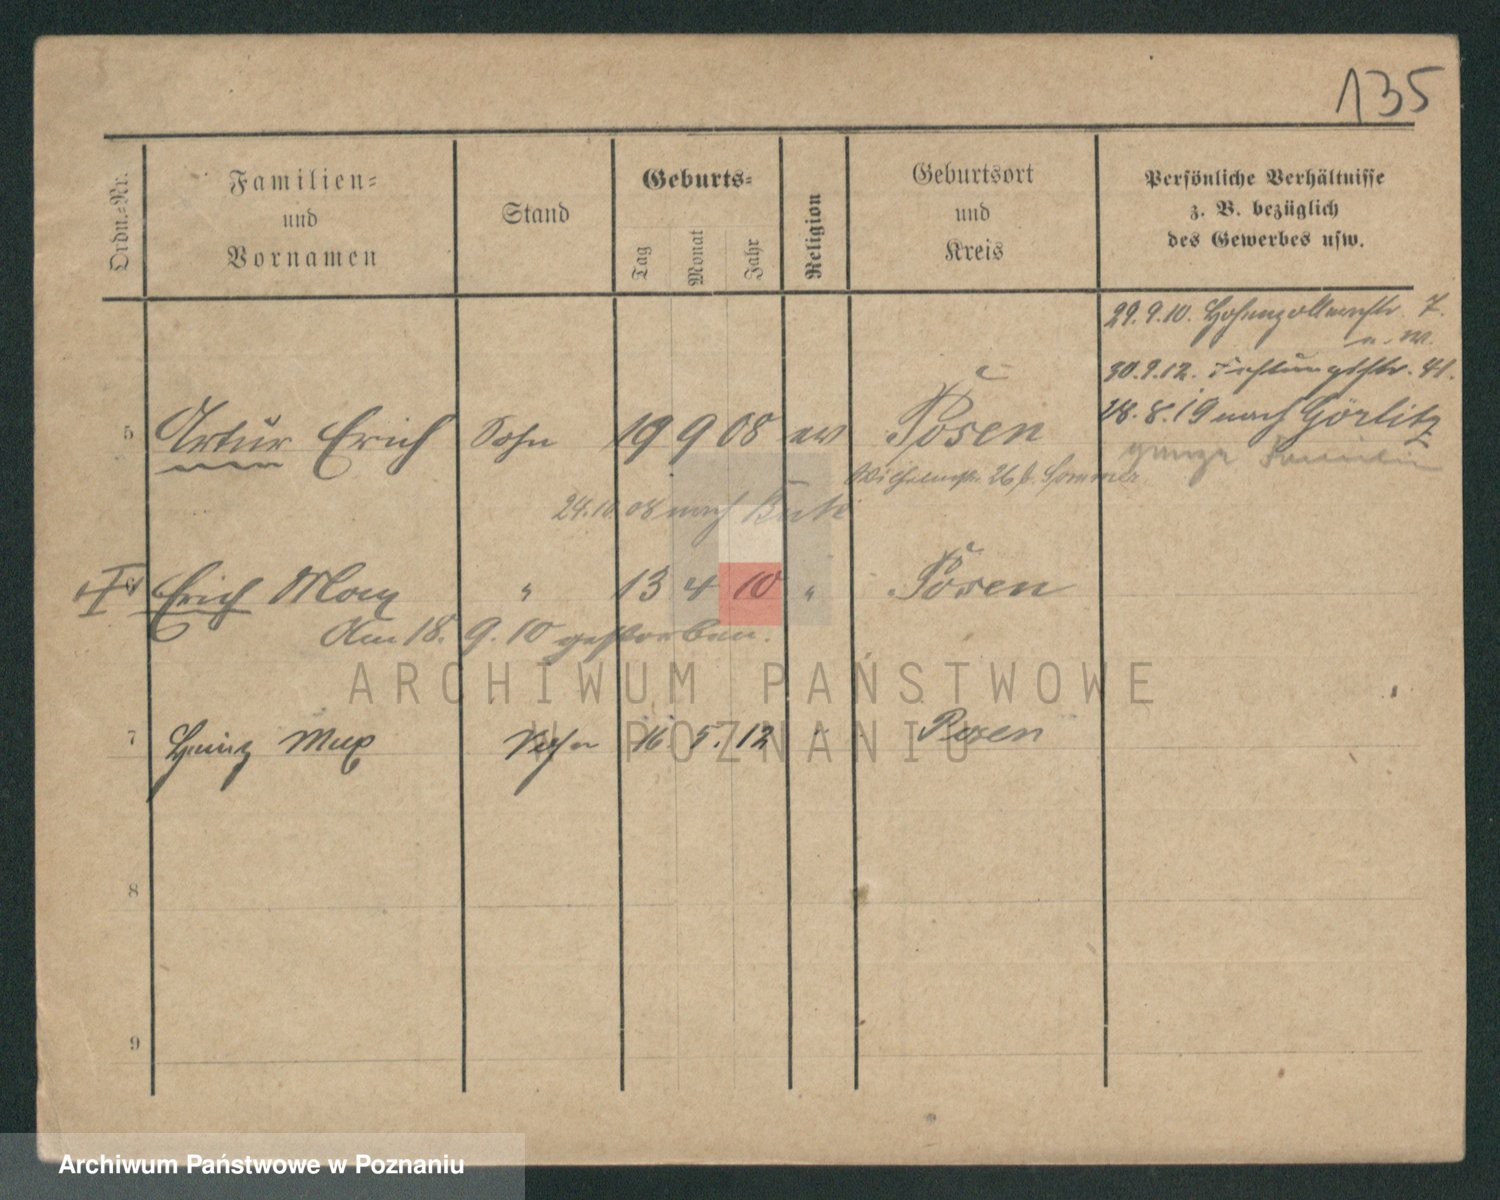 135
Ordn.-Nr.
Familien-
und
Vornamen
Stand
Geburts-
Tag
Monat
Jahr
Religion
Geburtsort
und
Kreis
Persönliche Verhältnisse
z. B. bezüglich
des Gewerbes usw.
29.9.10. Hohenzollernstr. 7.
30.9.12. Festungsstr. 41.
28.8.19 nach Görlitz
ganze Familie
5 Artur Erich Sohn 19 9 08 ev Posen
24.10.08 nach
6 Erich Max " 13 4 10 " Posen
Am 18. 9. 10 gestorben.
7 Heinz Max Sohn 16. 5. 12 " Posen
8
9
ARCHIWUM PAŃSTWOWE
W POZNANIU
Archiwum Państwowe w Poznaniu